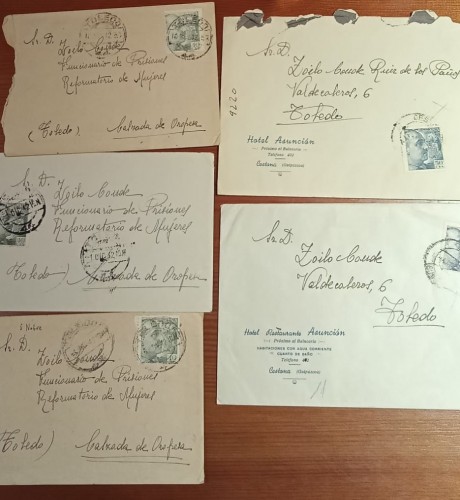 Sr. D.
Zoilo Conde
Funcionario de Prisiones
Reformatorio de Mujeres
(Toledo) Calzada de Oropesa
Sr. D.
Zoilo Conde
Funcionario de Prisiones
Reformatorio de Mujeres
(Toledo) Calzada de Oropesa
Sr. D.
Zoilo Conde
Funcionario de Prisiones
Reformatorio de Mujeres
(Toledo) Calzada de Oropesa
Sr. D.
Zoilo Conde Ruiz de los Paños
Valdecaleros, 6
Toledo
9220
Hotel Asunción
Próximo al Balneario
Cestona (Guipúzcoa)
Sr. D.
Zoilo Conde
Valdecaleros, 6
Toledo
Hotel Restaurante Asunción
Próximo al Balneario
HABITACIONES CON AGUA CORRIENTE
CUARTO DE BAÑO
Cestona (Guipúzcoa)